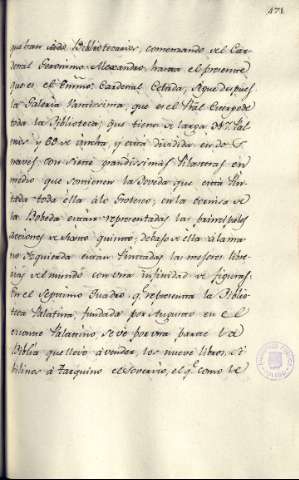 471
que han sido Bibliotecarios, comenzando del Car-
denal Geronimo Alexandro, hasta el presente
que es el Emmo. Cardenal Zelada, sigue despues
la Galeria Vaticana, que es el Rl. Cuerpo de
toda la Biblioteca, que tiene de larga 317 Pal-
mos, y 69 de ancha, y está dividida en dos
naves con siete grandissimos Pilastros en
medio que sostienen la Boveda que está Pin-
tada toda ella a lo Grotesco, en la cornisa de
la Boveda están representadas las principales
acciones de Sixto quinto, debaxo de ella á la ma-
no izquierda están Pintadas las mejores libre-
rias del mundo con una infinidad de figuras.
En el Septimo Quadro q.e representa la Biblio-
teca Palatina, fundada por Augusto en el
monte Palatino, se vé por una parte la
Sibila que llevó á vender, los nueve libros, Si-
bilinos á Tarquino el Sovervio, el q.e como he